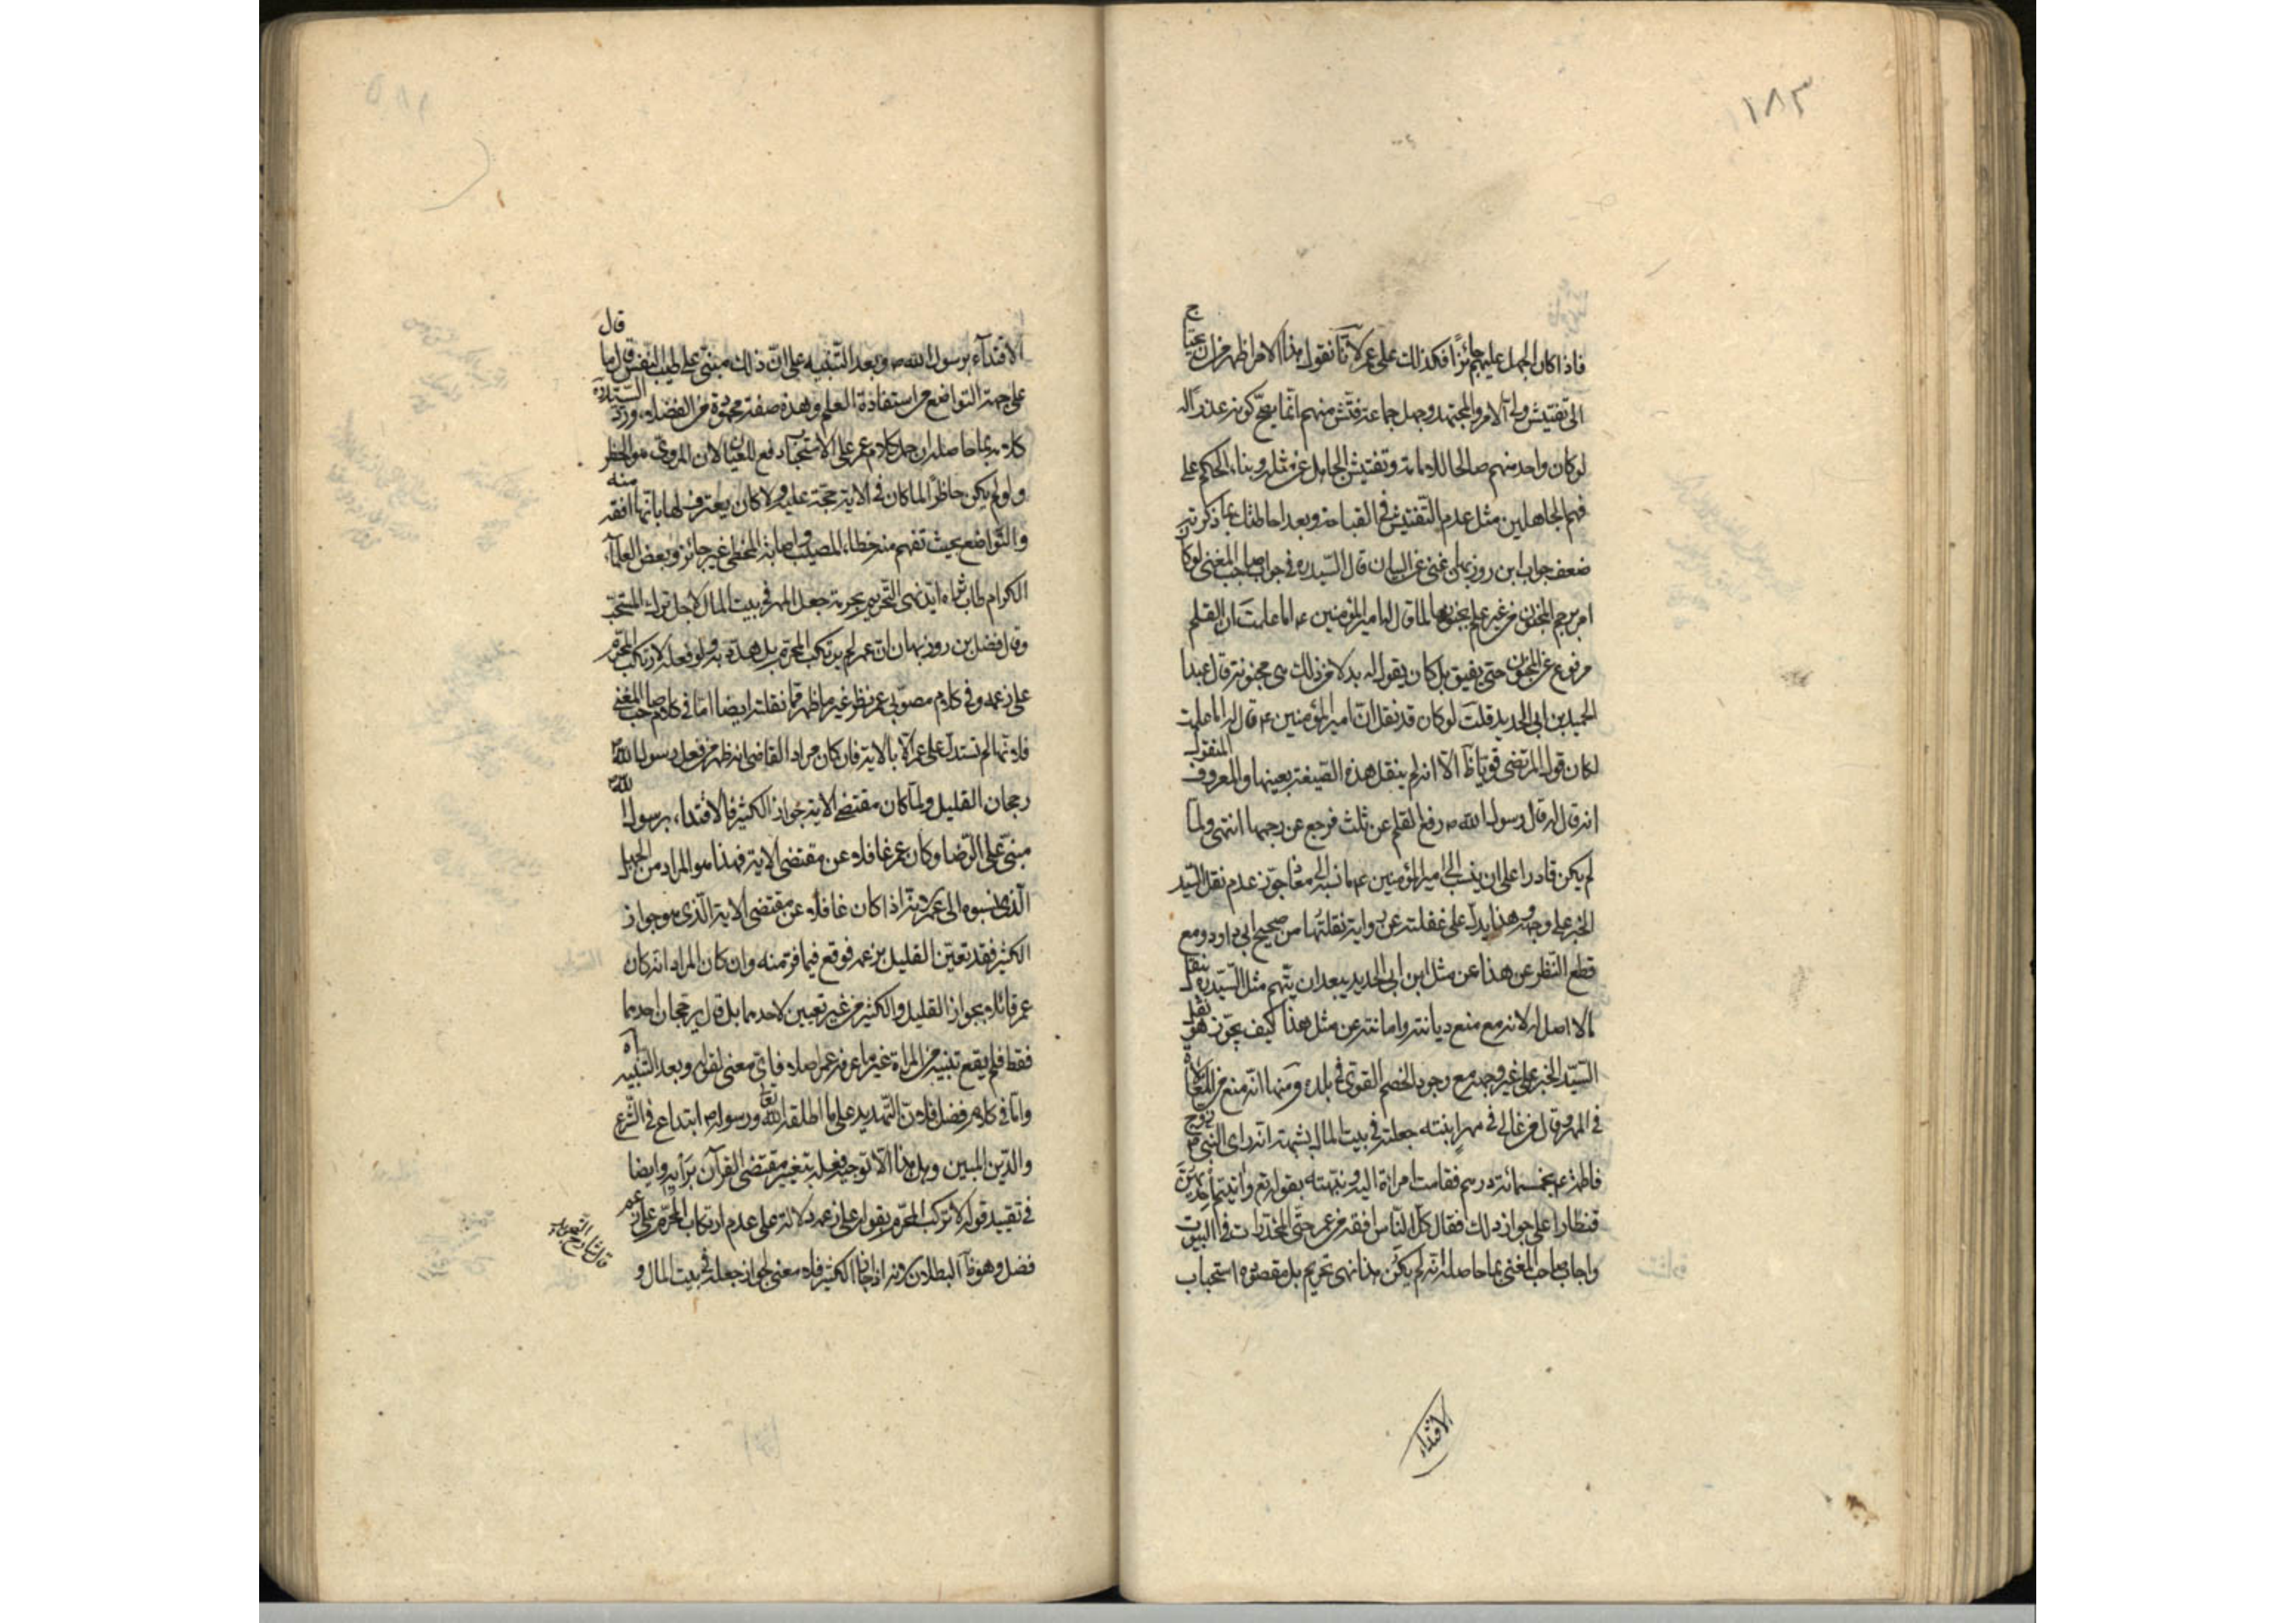 ١٨٣
فاذا كان الجهل عليهم جائزا فكذلك على عمر لانا نقول هذا الامر اظهر من ان يحتاج
الى تفتيش ولاة الامر والمجتهد وجهل جماعة فتش منهم انما يصح كونه عذرا له
لو كان واحد منهم صالحا للامامة وتفتيش الجاهل عن مثله وبناء الحكم على
فهم الجاهلين مثل عدم التفتيش في القباحة وبعد احاطتك بما ذكرته
ضعف جواب ابن روزبهان غنى عن البيان قال السيد ره في جواب صاحب المغنى لو كان
امر برجم المجنونة من غير علم بجنونها لما قال له امير المؤمنين ع اما علمت ان القلم
مرفوع عن المجنون حتى يفيق بل كان يقول له بدلا من ذلك هى مجنونة قال عبد
الحميد بن ابى الحديد قلت لو كان قد نقل ان امير المؤمنين ع قال له اما علمت
لكان قول المرتضى قويا ظاهرا الا انه لم ينقل هذه الصيغة بعينها والمعروف المنقول
انه قال له قال رسول الله ص رفع القلم عن ثلث فرجع عن رجمها انتهى ولما
لم يكن قادرا على ان ينسب الى امير المؤمنين ع ما نسبه الى معاذ جوز عدم نقل السيد
الخبر على وجهه وهذا يدل على غفلته عن رواية نقلتها من صحيح ابى داود ومع
قطع النظر عن هذا عن مثل ابن ابى الحديد يبعد ان يتهم مثل السيد ره بنقل
ما لا اصل له لانه مع منع ديانته وامانته عن مثل هذا كيف يجوز هو نقل
السيد الخبر على غير وجهه مع وجود الخصم القوى في بلده ومنها انه منع من المغالاة
في المهر وقال من غالى في مهر ابنته جعلته في بيت المال بشبهة انه راى النبى ص زوج
فاطمة ع بخمسمائة درهم فقامت امراة اليه ونبهته بقوله تع وآتيتم احديهن
قنطارا على جواز ذلك فقال كل الناس افقه من عمر حتى المخدرات في البيوت
واجاب صاحب المغنى بما حاصله انه لم يكن هذا نهى تحريم بل مقصوده استحباب
الاقتداء
الاقتداء برسول الله ص وبعد التنبيه على ان ذلك مبنى على طيب النفس قال ما قال
على جهة التواضع من استفادة العلم وهذه صفة محمودة من الفضلاء ورد السيد ره
كلامه بما حاصله ان حمل كلام عمر على الاستحباب دفع للعيان لان المروى هو الحظر
ولو لم يكن حاظرا لما كان في الاية حجة عليه ولا كان يعترف لها بانها افقه منه
والتواضع بحيث تفهم منه خطاء المصيب واصابة المخطى غير جائز وبعض العلماء
الكرام طاب ثراه ايد نهى التحريم بحرمة جعل المهر في بيت المال لاجل ترك المستحب
وقال فضل بن روزبهان ان عمر لم يرتكب المحرم بل هدد به ولو فعله لارتكب المحرم
على زعمه وفي كلام مصوبى عمر نظر غير ما ظهر مما نقلته ايضا اما في كلام صاحب المغنى
فلانها لم تستدل على عمر الا بالاية فان كان مراد القاضى انه ظهر من فعل رسول الله ص
رجحان القليل ولما كان مقتضى الاية جواز الكثير فالاقتداء برسول الله ص
مبنى على الرضا وكان عمر غافلا عن مقتضى الاية فهذا هو المراد من الجهل
الذى نسبوه الى عمر لانه اذا كان غافلا عن مقتضى الاية الذى هو جواز
الكثير فقد تعين القليل بزعمه فوقع فيما فر منه وان كان المراد انه كان
عمر قائلا بجواز القليل والكثير من غير تعيين لاحدهما بل قال برجحان احدهما
فقط فلم يقع تنبيه من المراة غير ما عرفه عمر اصلا فاى معنى لقوله وبعد التنبيه اه
واما في كلام فضل فلان التهديد على ما اطلقه الله تعا ورسوله ص ابتداع في الشرع
والدين المبين وهل هذا الا توجيه فعله بتغيير مقتضى القرآن برأيه وايضا
في تقييد قوله لارتكب المحرم بقوله على زعمه دلالة على عدم ارتكاب المحرم على زعم
فضل وهو ظاهر البطلان لانه اذا جاز الكثير فلا معنى لجواز جعله في بيت المال و
قال شارح التجريد